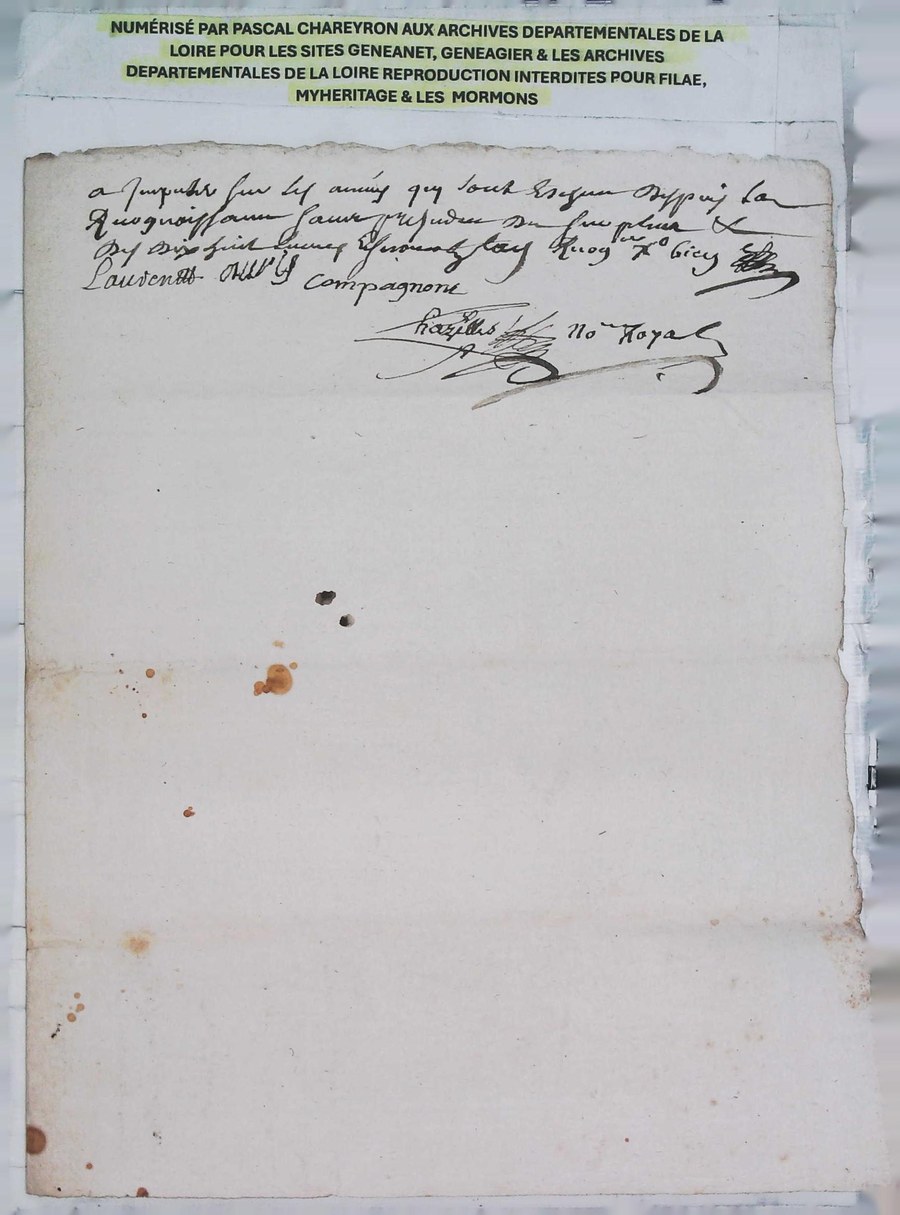 NUMÉRISÉ PAR PASCAL CHAREYRON AUX ARCHIVES DEPARTEMENTALES DE LA
LOIRE POUR LES SITES GENEANET, GENEAGIER & LES ARCHIVES
DEPARTEMENTALES DE LA LOIRE REPRODUCTION INTERDITES POUR FILAE,
MYHERITAGE & LES MORMONS
a Imputer sur les années quy sont Escheu Despuis la
Recognoissance sans prejudice du surplus &
des dix huit
Laurent Compagnont
Chazelles No.re Royal